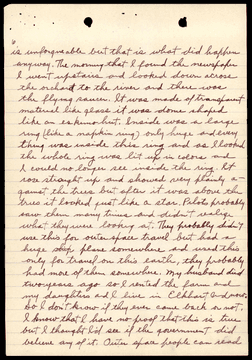 6
is unforgiveable but that is what did happen
anyway. The morning that I found the newspaper
I went upstairs and looked down across
the orchard to the river and there was
the flying saucer. It was made of transparent
material like glass it was dome shaped
like an eskimo hut. Inside was a large
ring (like a napkin ring) only huge and every
thing was inside this ring and as I looked
the whole ring was lit up in colors and
I could no longer see inside the ring. It
rose straight up and showed very plainly a-
gainst the trees but after it was above the
trees it looked just like a star. Pilots probably
saw them many times and didn't realize
what they were looking at. They probably didn't
use this for outer space travel but had a
huge ship place somewhere and used this
only for travel on this earth, they probably
had more of them somewhere. My husband died
two years ago so I rented the farm and
my daughters and I live in Elkhart and now.
So I don't know if they ever came back or not.
I know that I have no proof that this is true
but I thought I'd see if the government did
believe any of it. Outer space people can read